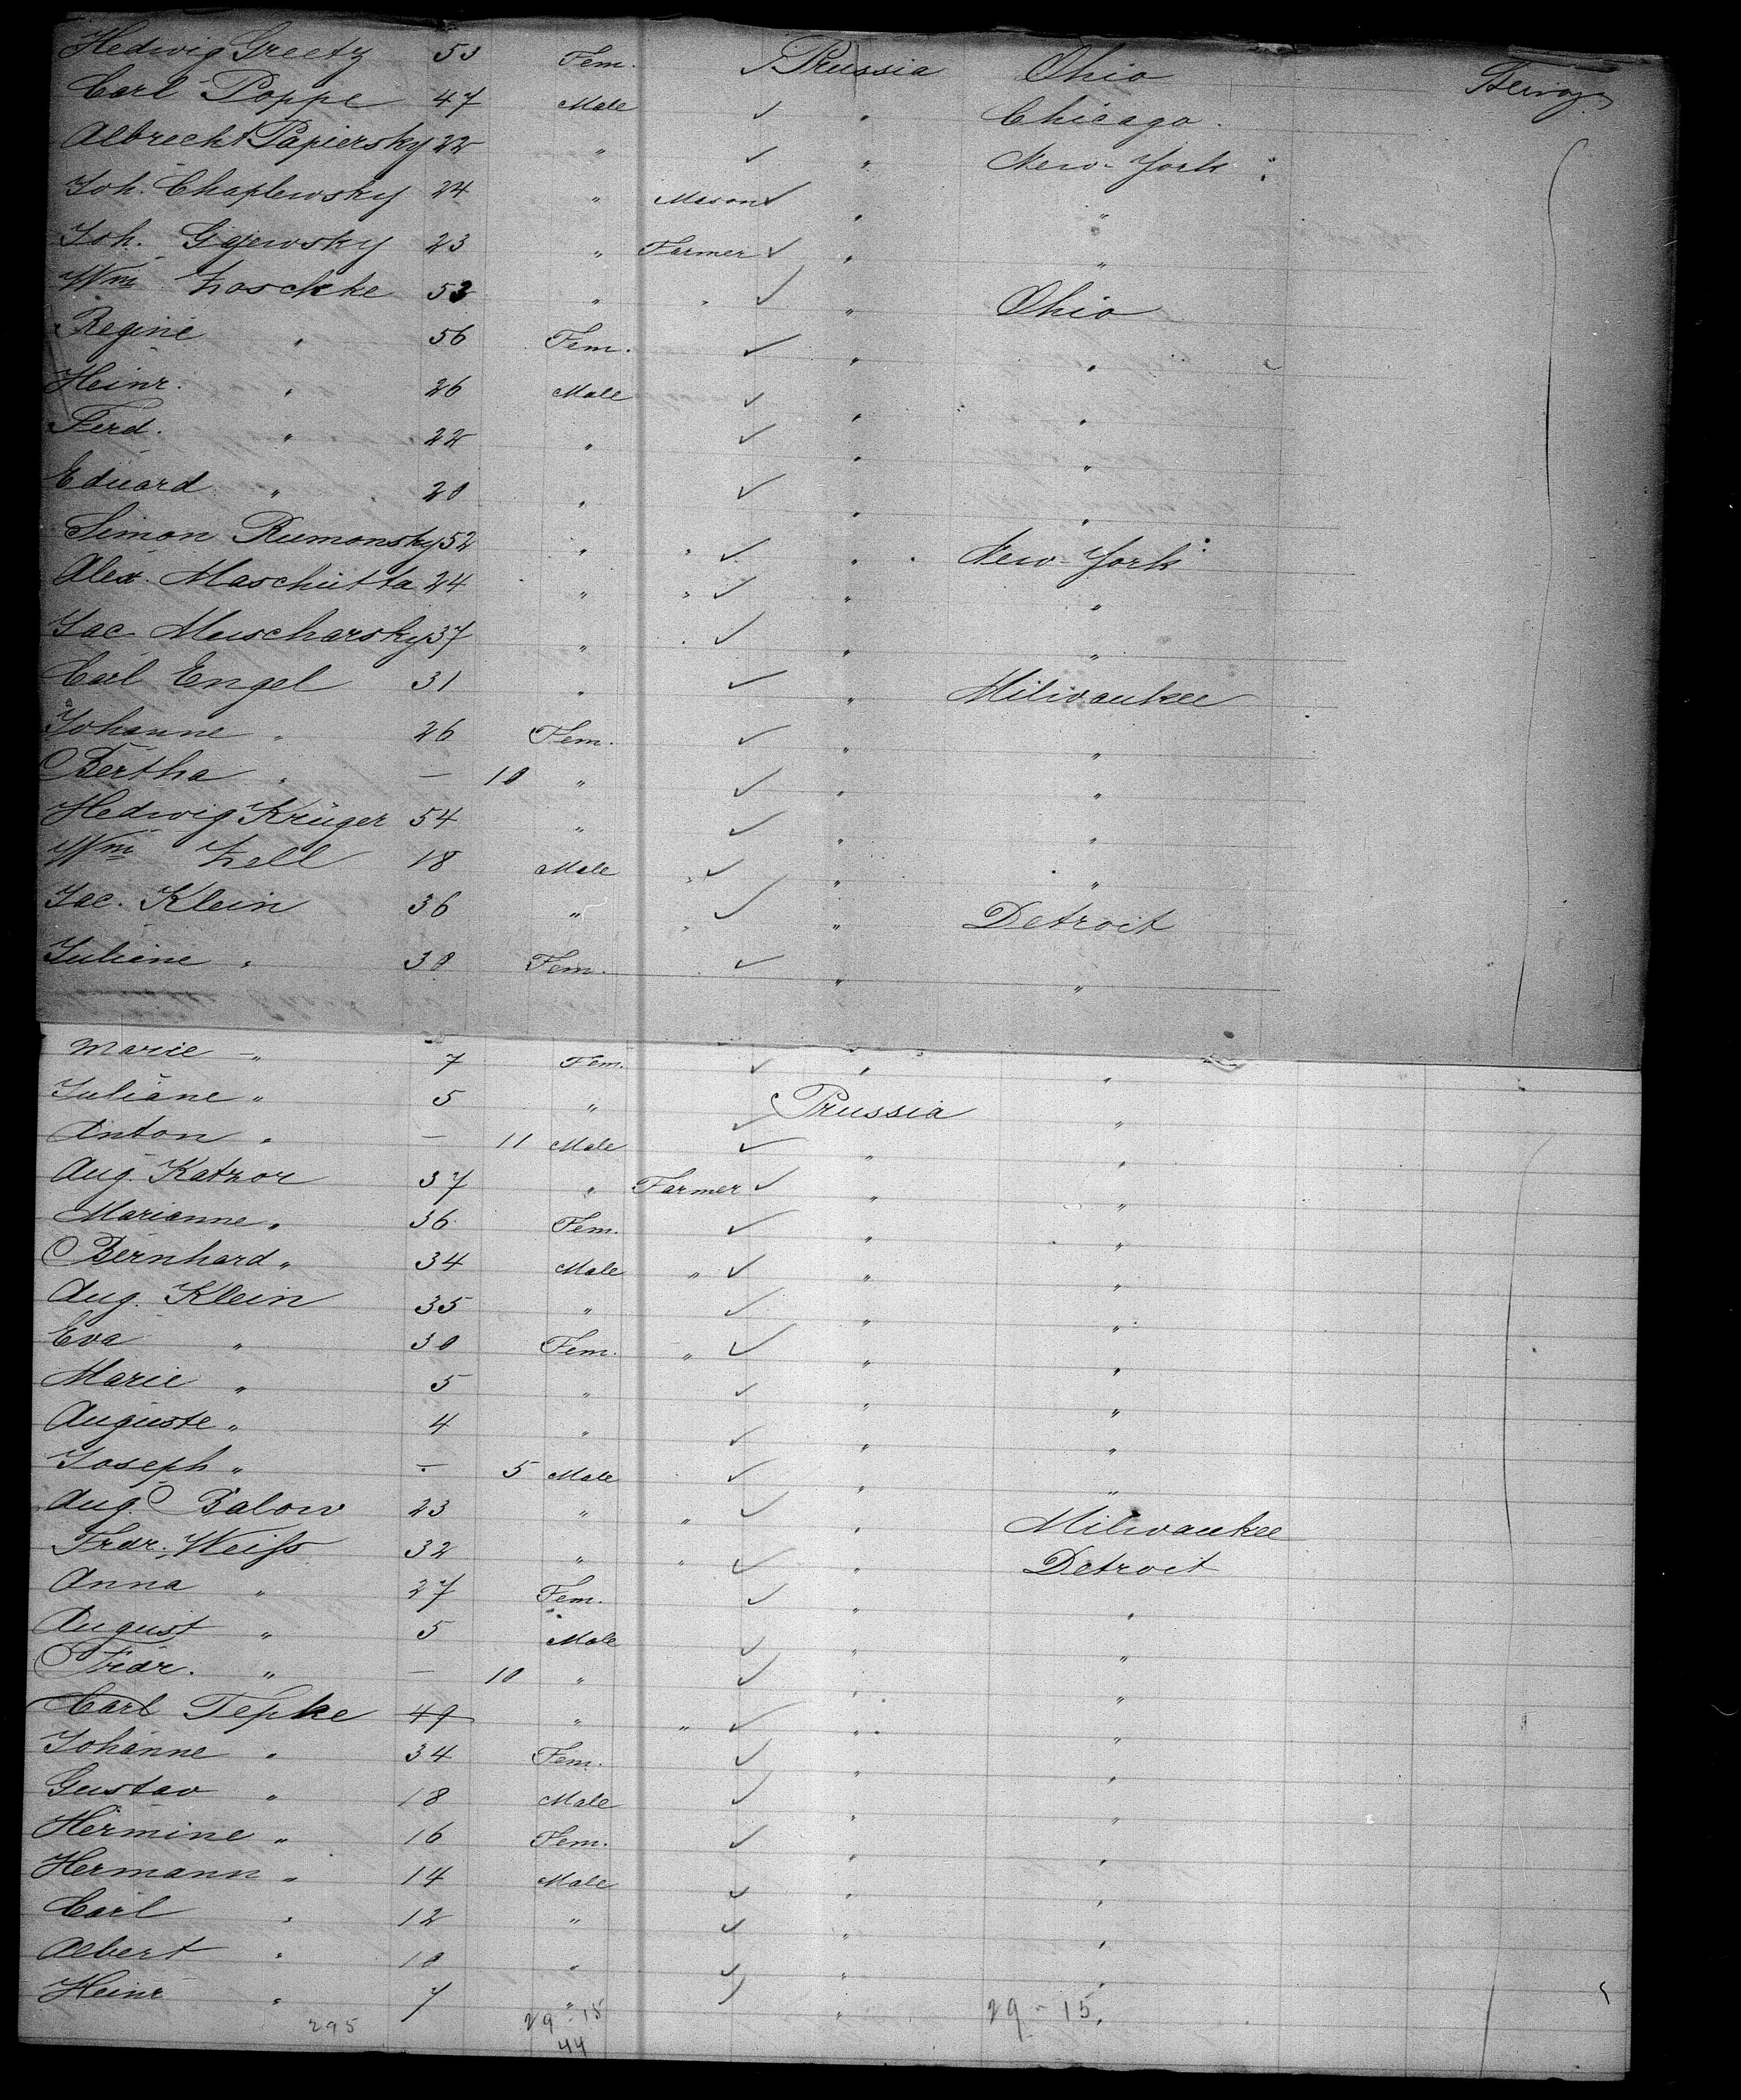 Hedwig Greetz 53 Fem. Prussia Ohio Steerage
Carl Poppe 47 Male " Chicago
Albrecht Papiersky 22 " " New-York
Joh. Chaplewsky 24 " Mason " "
Joh. Gajewsky 23 " Farmer " "
Wm Zaschke 53 " " " Ohio
Regine " 56 Fem. " "
Heinr. " 26 Male " "
Ferd. " 22 " " "
Eduard " 20 " " "
Simon Rumonsky 52 " " " New-York
Alex. Maschutta 24 " " " "
Jac. Muscharsky 37 " " " "
Carl Engel 31 " " Milwaukee
Johanne " 26 Fem. " "
Bertha " — 10 " " "
Hedwig Krüger 54 " " "
Wm Zell 18 Male " " "
Jac. Klein 36 " " " Detroit
Juliane " 30 Fem. " "
Marie " 7 Fem. " "
Juliane " 5 " Prussia "
Anton " — 11 Male " "
Aug. Katzor 37 " Farmer " "
Marianne " 36 Fem. " "
Bernhard " 34 Male " " "
Aug. Klein 35 " " "
Eva " 30 Fem. " " "
Marie " 5 " " "
Auguste " 4 " " "
Joseph " — 5 Male " "
Aug. Balow 23 " " " Milwaukee
Frdr. Weiss 32 " " " Detroit
Anna " 27 Fem. " "
August " 5 Male " "
Frdr. " — 10 " " "
Carl Tepke 49 " " " "
Johanne " 34 Fem. " "
Gustav " 18 Male " "
Hermine " 16 Fem. " "
Hermann " 14 Male " "
Carl " 12 " " "
Albert " 10 " " "
Heinr " 7 " " 29-15
295 29-15
44